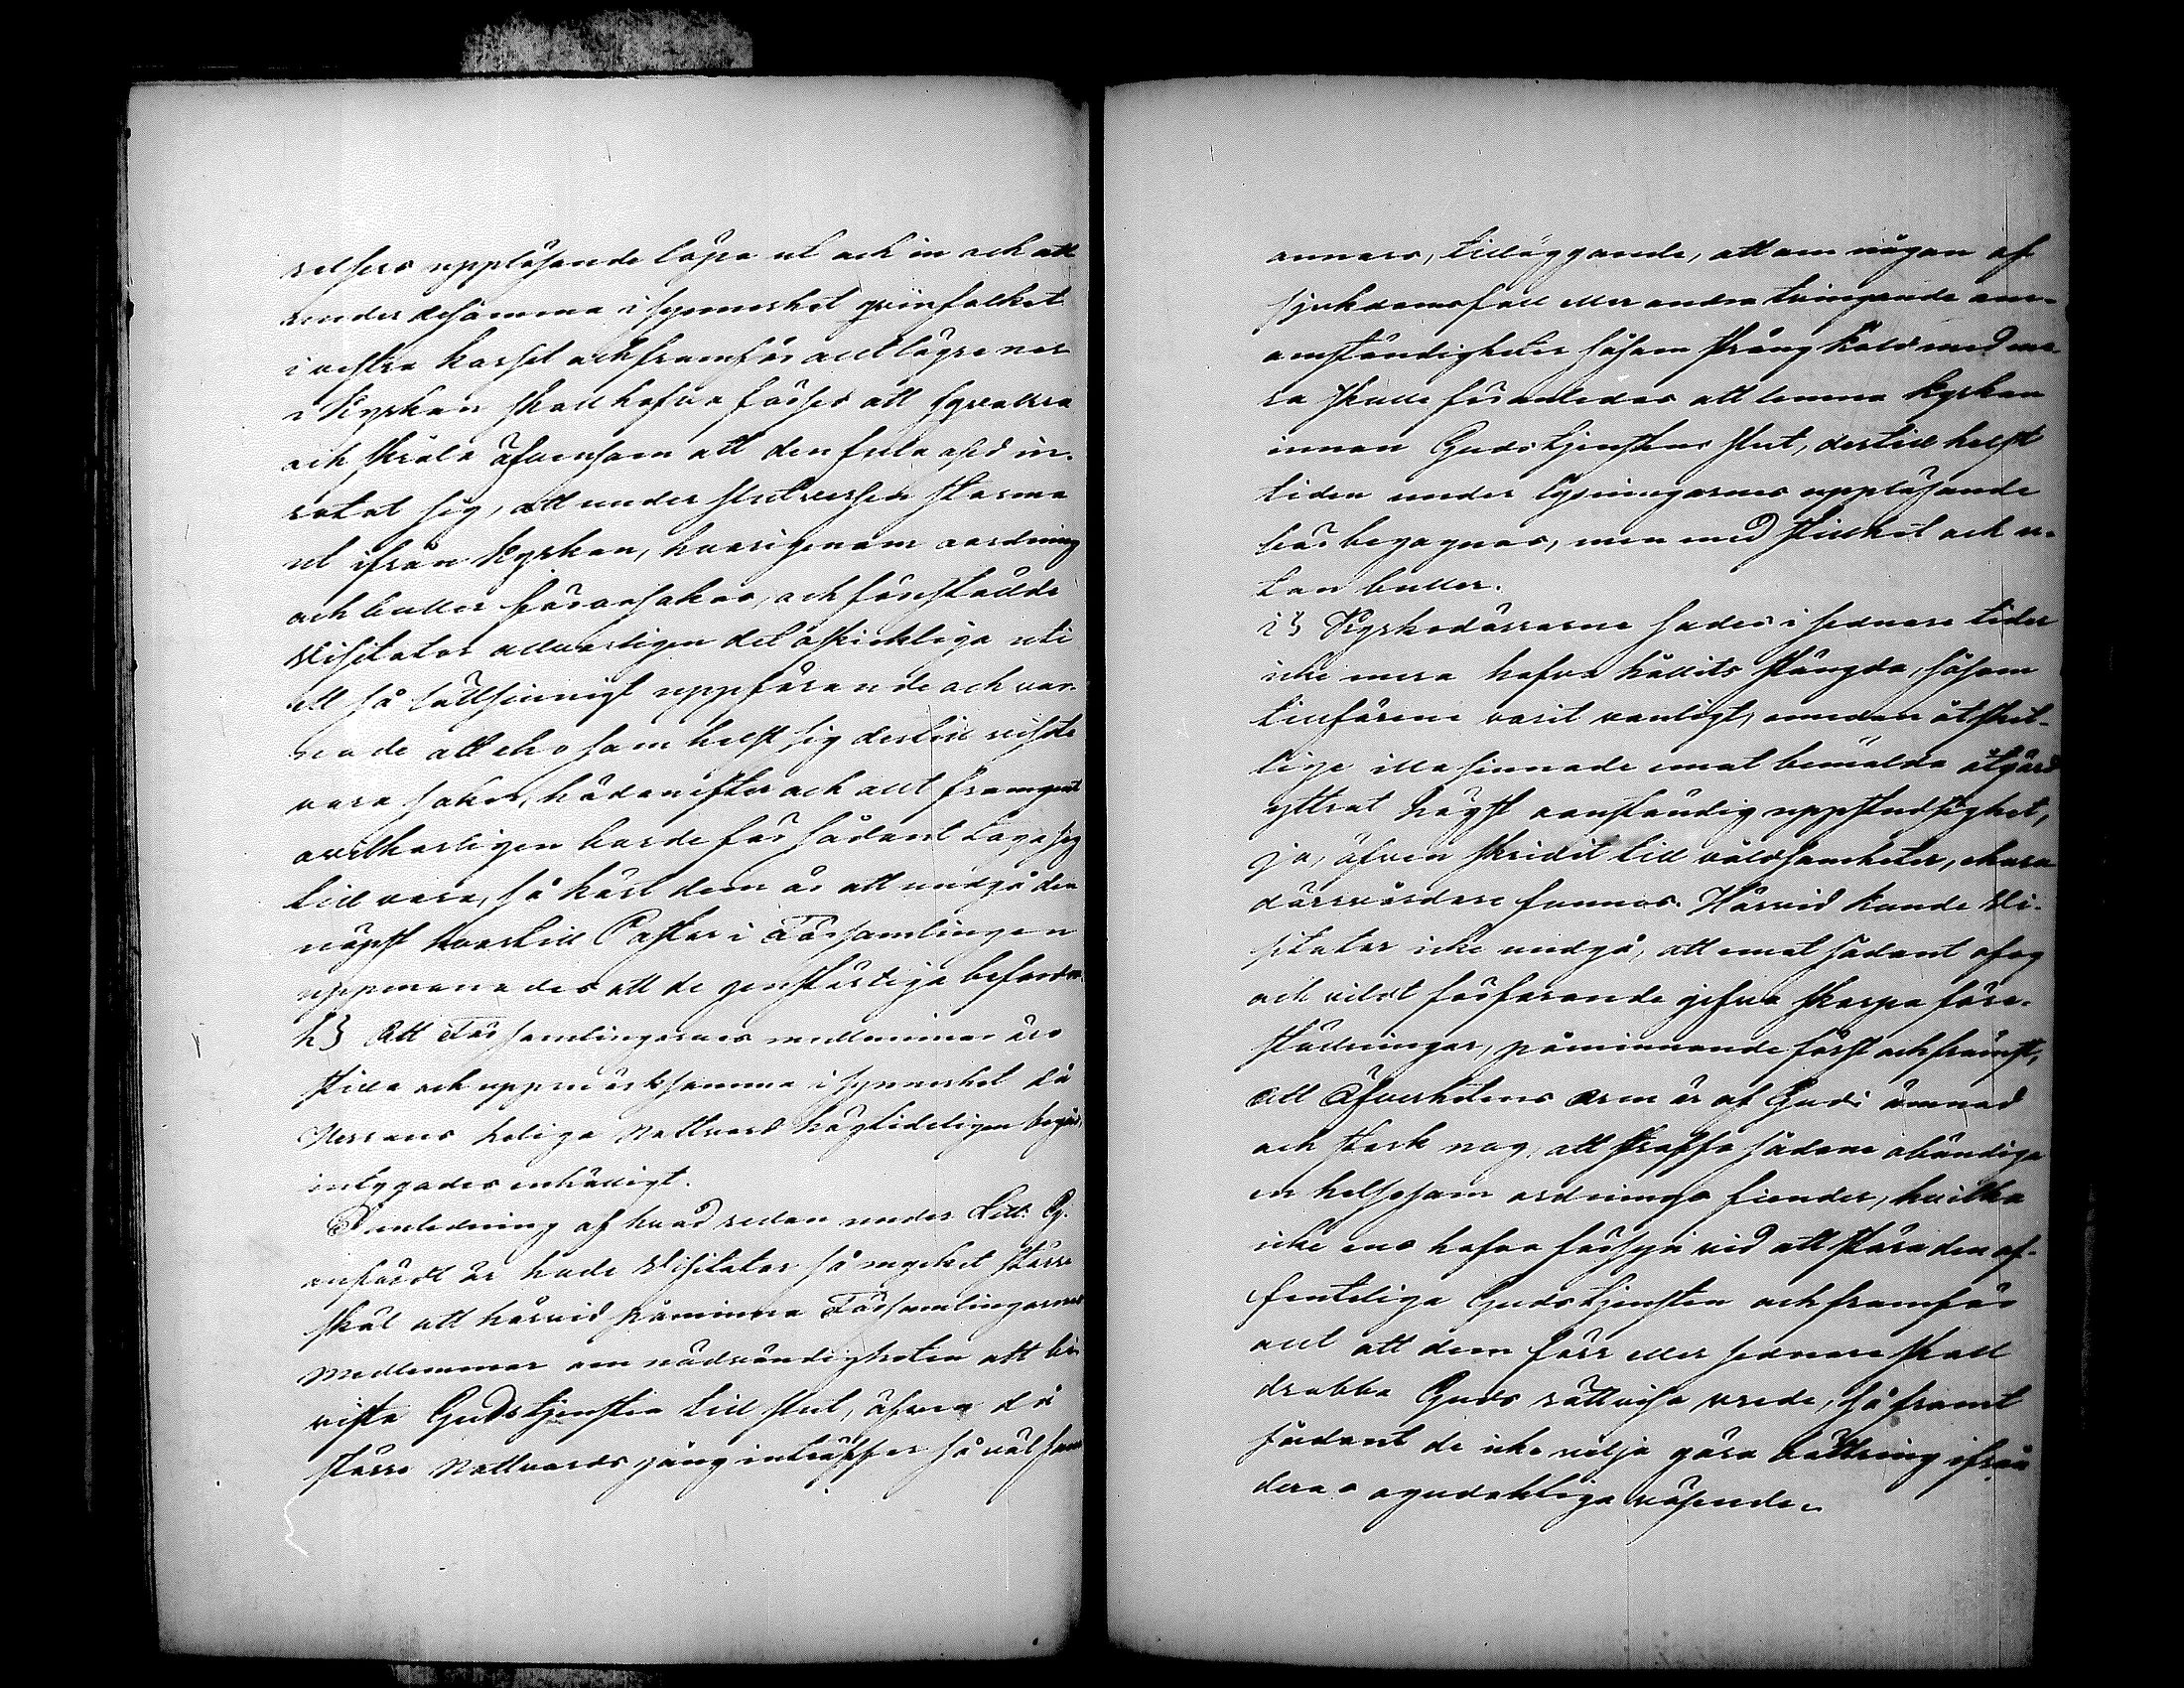 relsers uppläsande löpa ut och in och att
under desamma i synnerhet qvinfolket
i vestra korset och framför allt lägre ner
i Kyrkan skall hafva förser att sqvallra
och skråla äfvensom att den fula osed in-
rotat sig, att under slutversen storma
ut ifrån Kyrkan, hvarigenom oordning
och buller förorsakas, och förestälde
Visitator allvarligen det oskickliga uti
ett så lättsinnigt uppförande och var-
nade att eho som helst sig dertill viste
vara saker, hädanefter och allt framgent
ovilkorligen borde för sådant taga sig
till vara, så kärt dem är att undgå den
näpst hvartill Pastor i Församlingen
uppmanades att de genstörtiga befordra.
h) Att Församlingarnes medlemmar äro
stilla och uppmärksamma i synnerhet då
Herrans heliga Nattvard högtideligen begås,
intygades enhälligt.
I anledning af hvad redan under Litt: G.
anfördt är hade Visitator så mycket större
skäl att härvid påminna Församlingarnes
Medlemmar om nödvändigheten att bi-
vista Gudstjensten till slut, äfven då
större Nattvards gång inträffer så väl som
annars, tilläggande, att om någon af
sjukdomsfall eller andra tvingande om-
omständigheter såsom sträng köld med me-
ra skulle föranledas att lemna Kyrkan
innan Gudstjenstens slut, dertill helst
tiden under lysningarnes uppläsande
bör begagnas, men med stillhet och u-
tan buller.
i) Kyrkodörrarne sades i sednare tider
icke mera hafva hållits stängda, såsom
tillförene varit vanligt, emedan åtskil-
lige illasinnade emot bemälda åtgärd
yttrat högst oanständig uppstudsighet,
ja, äfven skridit till våldsamheter, ehuru
dörrvårdare funnos. Härvid kunde Vi-
sitator icke undgå, att emot sådant ofog
och vildt förfarande gifva skarpa före-
ställningar, påminnande först och främst,
att Öfverhetens arm är af Gudi ämnad
och stark nog, att straffa sådane obändiga
en helsosam ordnings fiender, hvilka
icke ens hafva försyn vid att störa den of-
fenteliga Gudstjensten och framför
allt att dem förr eller sednare skall
drabba Guds rättvisa vrede, så framt
sådant de icke velja göra bättring ifrån
deras ogudaktliga väsende.